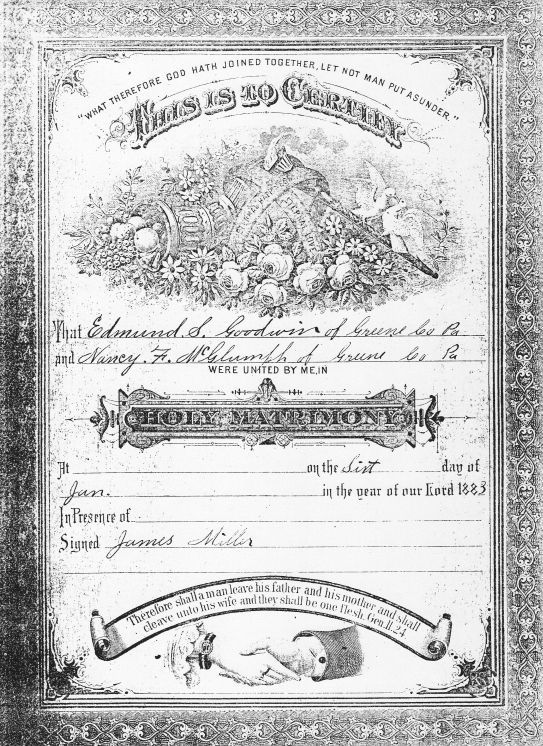 "WHAT THEREFORE GOD HATH JOINED TOGETHER, LET NOT MAN PUT ASUNDER."
THIS IS TO CERTIFY
That Edmund. S. Goodwin of Greene Co Pa
and Nancy. F. McGlumph of Greene Co Pa
WERE UNITED BY ME, IN
HOLY MATRIMONY
At on the Sixt day of
Jan. in the year of our Lord 1883
In Presence of
Signed James Miller
Therefore shall a man leave his father and his mother and shall
cleave unto his wife and they shall be one flesh. Gen. II. 24